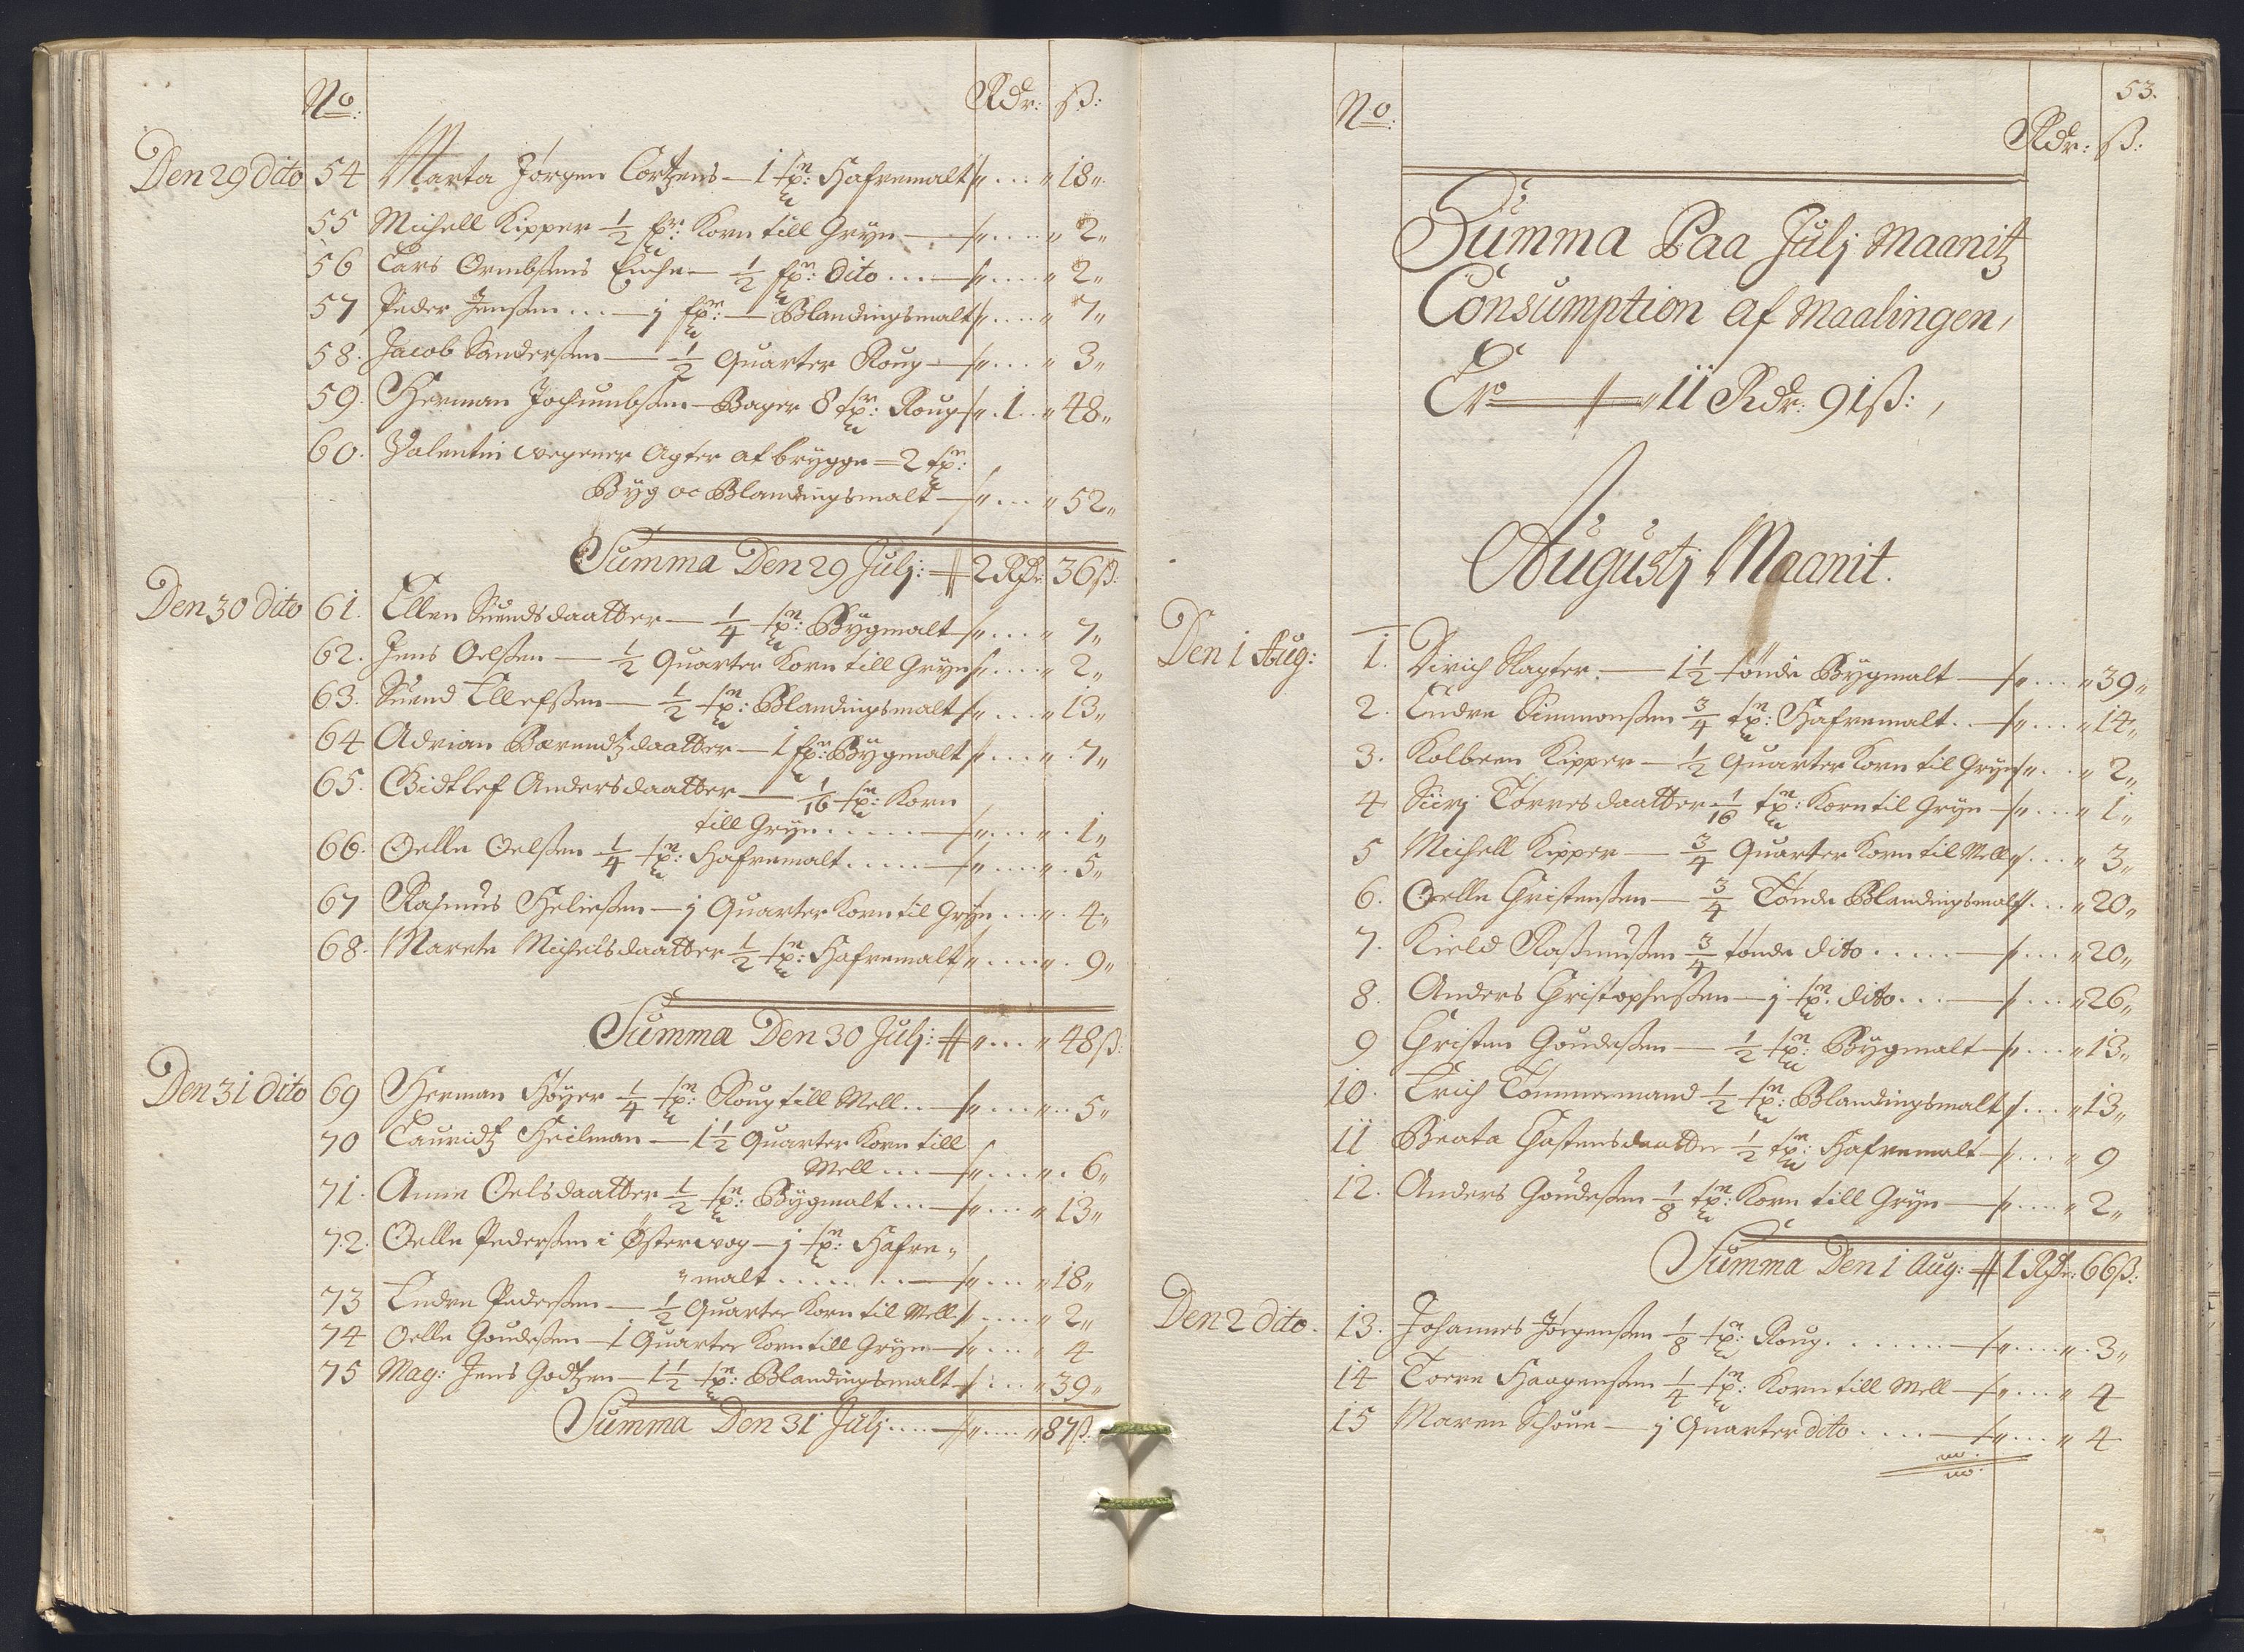 No: Rdr: ß:
Den 29 Dito 54 Marta Jørgen Cortzens — 1 tn: Hafremalt „ ... „ 18„
55 Michell Kipper ½ sp: Korn till Gryn — „ .... „ 2„
56 Lars Ormbsens Enche — ½ sp: dito ... — „ .... „ 2„
57 Peder Jensen ... — j sp: — Blandingsmalt „ .... „ 7„
58. Jacob Sandersen — ½ Quarter Roug — „ ... „ 3„
59. Herman Jochumbsen Bager 8 tp: Roug „ . 1 .. „ 48„
60. Valentin wegener Agter at brygge = 2 tp:
Byg oc Blandingsmalt — „ ... „ 52„
Summa Den 29 Julj: 2 Rdr: 36 ß:
Den 30 Dito 61. Ellen Suendsdaatter — ¼ tp: Bygmalt „ ... „ 7„
62. Jens Oelsen — ½ Quarter Korn till Gryn „ .... „ 2„
63. Suend Ellefssen — ½ tp: Blandingsmalt „ ... „ 13„
64 Adrian Bærendtzdaatter — 1 sp: Bygmalt „ ... „ 7„
65. Gidtlef Andersdaatter — 1/16 tp: Korn
till Gryn ..... — „ ... „ . 1„
66. Oelle Oelsen ¼ tp: Hafremalt ..... — „ .... „ . 5„
67 Rasmus Heliesen — j Quarter Korn til Gryn ... „ . 4„
68. Marete Michelsdaatter ½ tp: Hafremalt „ .... „ . 9„
Summa Den 30 Julj: „ ... „ 48 ß:
Den 31 Dito 69 Herman Høyer ¼ tp: Roug till Mell .. — „ ... „ .. 5„
70 Lauridtz Heilman — 1½ Quarter Korn till
Mell ... — „ ... „ . 6„
71. Anne Oelsdaatter ½ tp: Bygmalt ... — „ ... „ 13„
72. Oelle Pedersen i Østervog — j tp: Hafre„
„malt ........ — „ ... „ 18„
73 Endre Pedersen — ½ Quarter Korn til Mell .... „ 2„
74 Oelle Goudesen — 1 Quarter Korn till Gryn — „ ... „ 4
75 Mag: Jens Godtzen — 1½ tp: Blandingsmalt ... „ 39„
Summa Den 31 Julj .... — „ .... „ 87 ß:
53.
No: Rdr: ß:
Summa Paa Julj Maanitz
Consumption af Maalingen,
Er — „ 11 Rdr: 91 ß: ,
Augustj Maanit.
Den 1 Aug: 1. Dirich Slagter. — 1½ tønde Bygmalt — „ ... „ 39„
2. Endre Simmonsen ¾ tp: Hafremalt .. — „ ... „ 14„
3. Kolbeen Kipper — ½ Quarter Korn til Gryn „ .. „ 2„
4 Siirj Torresdaatter 1/16 tp: Korn til Gryn — „ ... „ 1„
5 Michell Kipper — ¾ Quarter Korn til Mell ... „ 3„
6. Oelle Christensen — ¾ Tønde Blandingsmalt ... „ 20„
7. Kield Rasmussen ¾ tønde dito ..... — ... „ 20„
8. Anders Christophersen — j tp: dito ... — ... „ 26„
9 Christen Goudesen — ½ tp: Bygmalt — ... „ 13„
10. Erich Tømmermand ½ tp: Blandingsmalt ... „ 13„
11 Beata Chastensdaatter ½ tp: Hafremalt — ... „ 9
12. Anders Goudesen ⅛ tp: Korn till Gryn — .... „ 2„
Summa Den 1 Aug: 1 Rdr: 66 ß:
Den 2 dito. 13. Johannes Jørgensen ⅛ tp: Roug ....... — „ .... „ . 3„
14 Tørre Haagensen ¼ tp: Korn till Mell — „ ... „ 4
15 Maren Schoue — j Quarter dito .... — „ ... „ 4